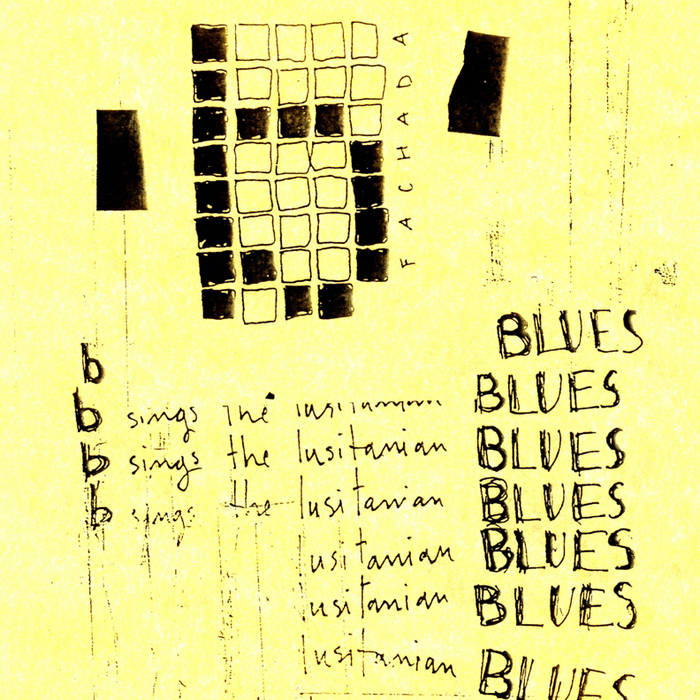 FACHADA
BLUES
b
BLUES
b sings the lusitanian
b sings the lusitanian BLUES
b sings the lusitanian BLUES
lusitanian BLUES
lusitanian BLUES
lusitanian BLUES